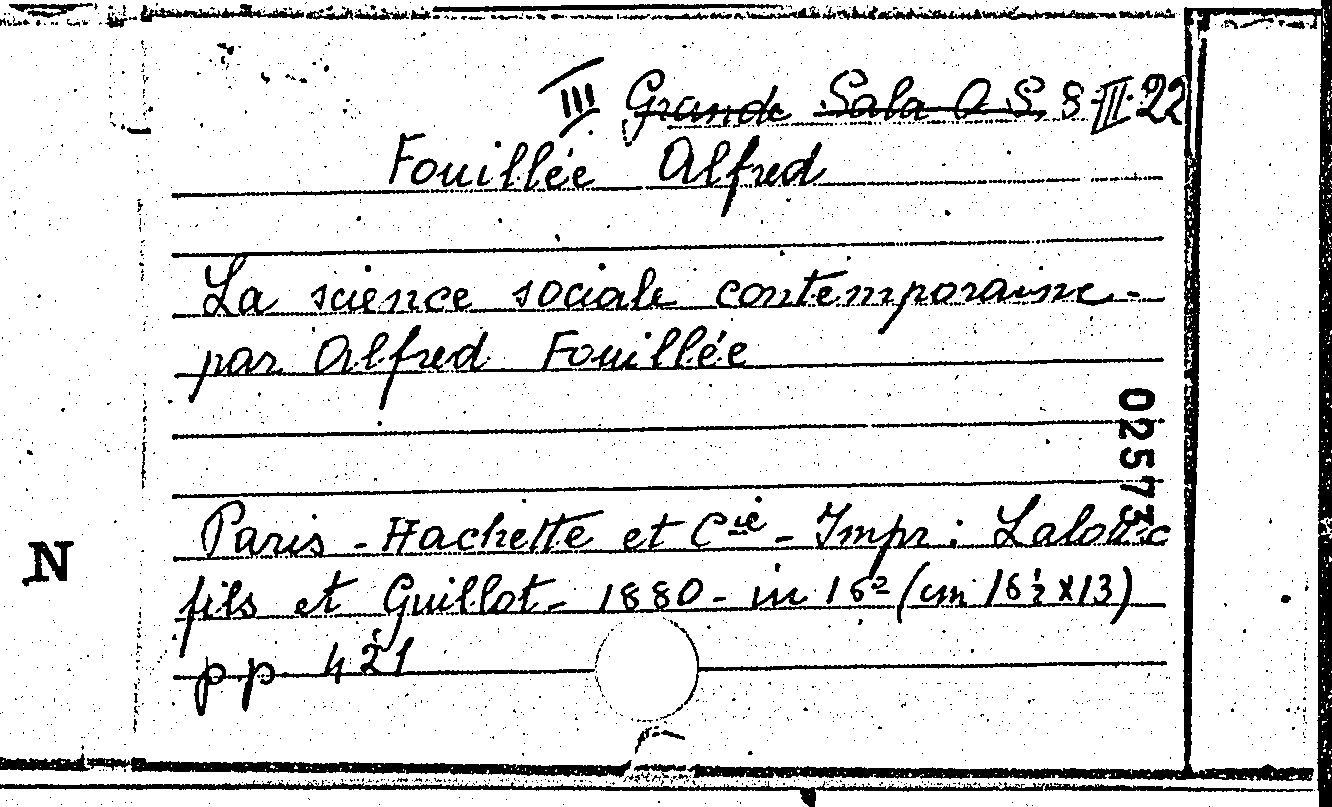 III Grande Sala O S. 8.III.22
Fouillée Alfred
La science sociale contemporaine -
par Alfred Fouillée
02573
Paris - Hachette et Cie - Impr: Laloux
fils et Guillot - 1880 - in 16º (cm 16½ x 13)
N
pp. 421